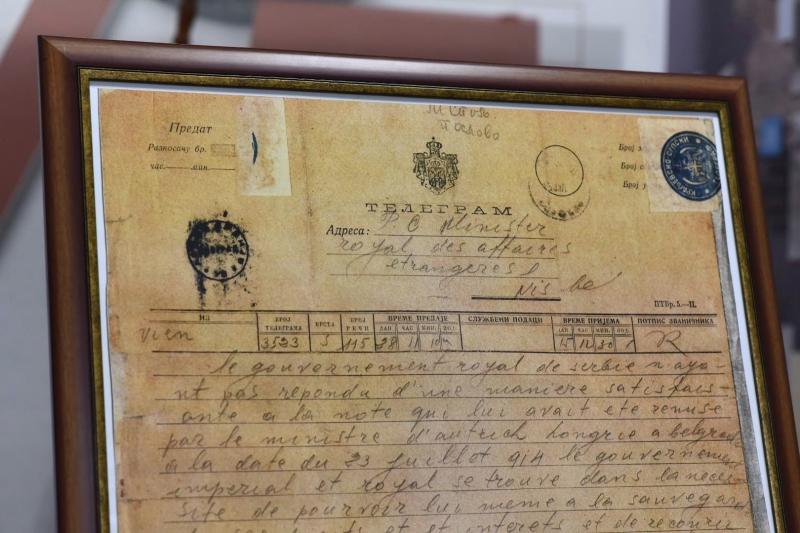 Предат
Разносачу бр.
час. мин.
М Ст
послова
Број
Број
Број
ТЕЛЕГРАМ
Адреса: P. O Minister
royal des affaires
etrangeres
Nis be
ПТБр. 5.—II.
ИЗ БРОЈ ТЕЛЕГРАМА ВРСТА БРОЈ РЕЧИ ВРЕМЕ ПРЕДАЈЕ СЛУЖБЕНИ ПОДАЦИ ВРЕМЕ ПРИЈЕМА ПОТПИС ЗВАНИЧНИКА
ДАН ЧАС МИН. ДАН ЧАС МИН.
Vien 3523 5 115 28 11 10 15 12 30
le gouvernement royal de serbie n ayа-
nt pas repondu d'une maniere satisfais-
ante a la note qui lui avait ete remise
par le ministre d'autrich hongrie a belgrade
a la date du 23 juillot 914 le gouvernem
imperial et royal se trouve dans la neces
site de pourvoir lui meme a la sauvegard
et interets et de recourir